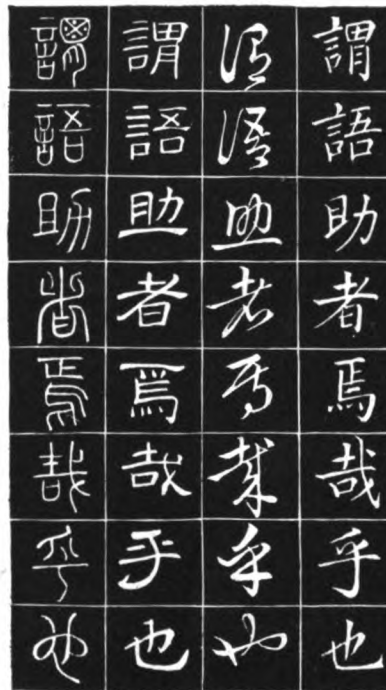 謂語助者焉哉乎也
謂語助者焉哉乎也
謂語助者焉哉乎也
謂語助者焉哉乎也